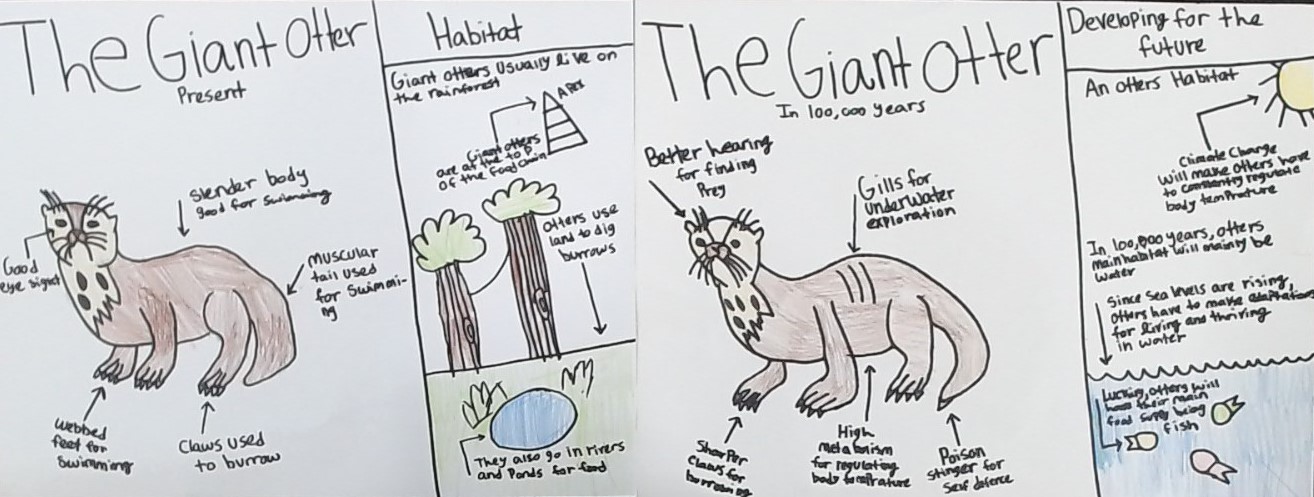 The Giant Otter
Present
slender body
good for swimming
Good
eye sight
muscular
tail used
for swimmi-
ng
webbed
feet for
swimming
Claws used
to burrow
Habitat
Giant otters usually live on
the rainforest
APEX
Giant otters
are at the top
of the food chain
Otters use
land to dig
burrows
They also go in rivers
and Ponds for food
The Giant Otter
In 100,000 years
Better hearing
for finding
Prey
Gills for
underwater
exploration
Sharper
claws for
burrowing
High
metabolism
for regulating
body temprature
Poison
stinger for
self defence
Developing for the
future
An otters Habitat
Climate Change
will make otters have
to constantly regulate
body temprature
In 100,000 years, otters
main habitat will mainly be
water
Since sea levels are rising,
otters have to make adaptations
for living and thriving
in water
otters will
their main
food supply being
fish